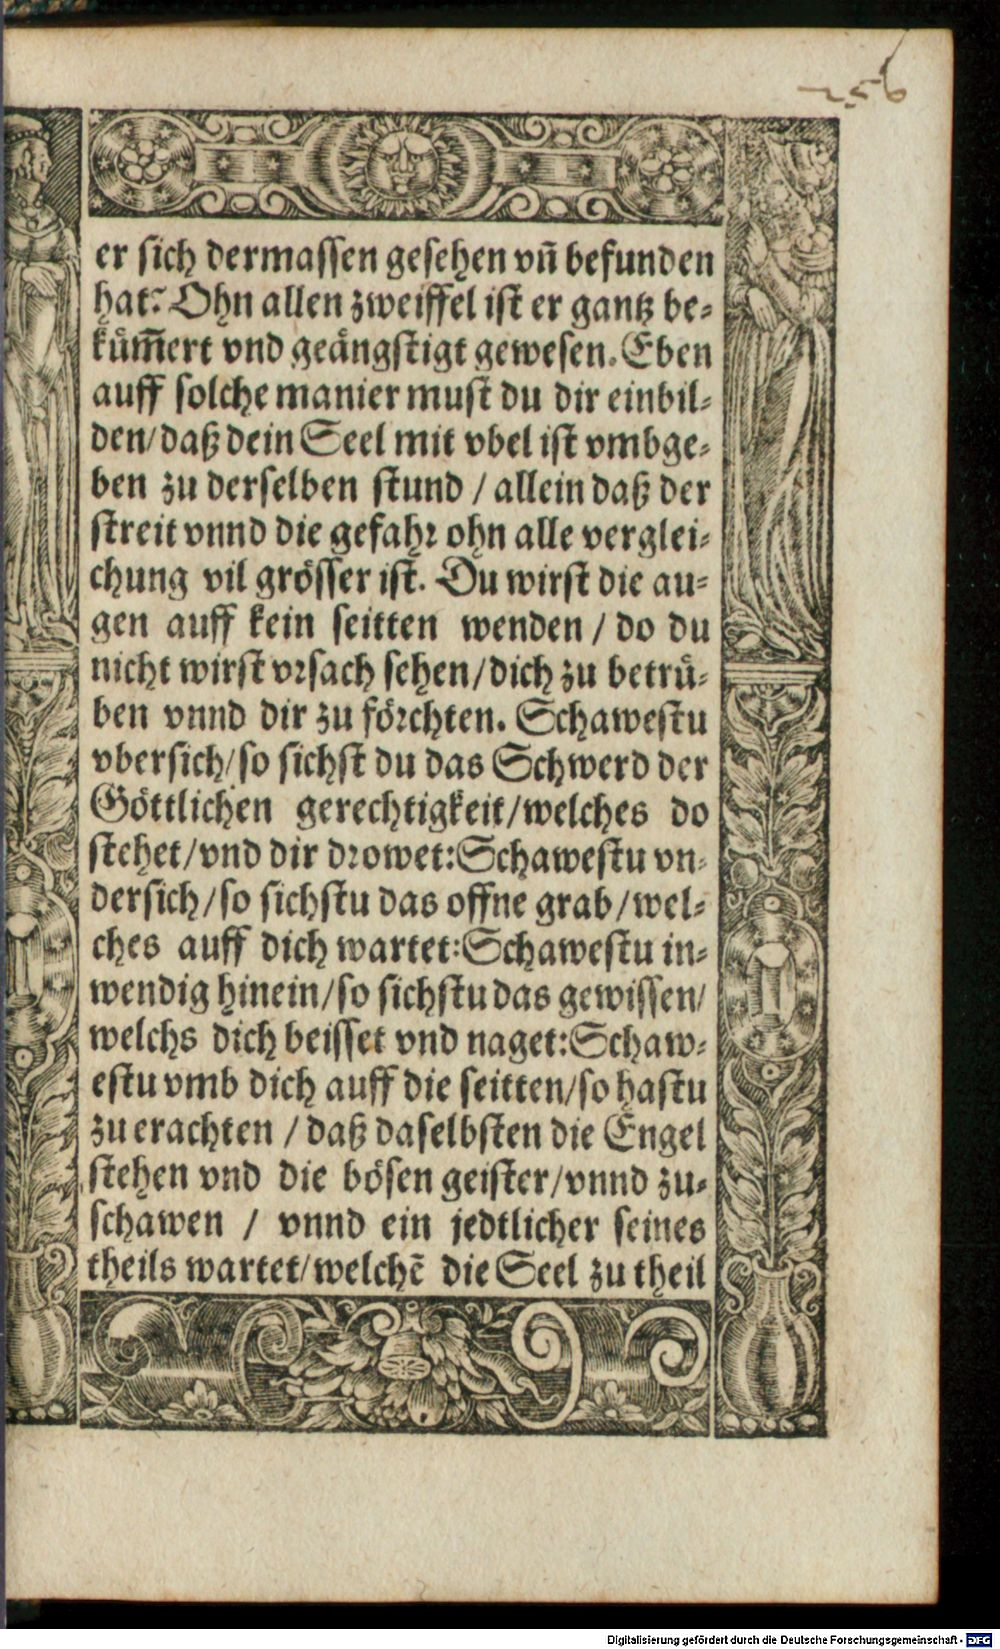 256
er sich dermassen gesehen vñ befunden
hat? Ohn allen zweiffel ist er gantz be-
kuͤm̃ert vnd geaͤngstigt gewesen. Eben
auff solche manier must du dir einbil-
den/ daß dein Seel mit vbel ist vmbge-
ben zu derselben stund / allein daß der
streit vnnd die gefahꝛ ohn alle verglei-
chung vil groͤsser ist. Du wirst die au-
gen auff kein seitten wenden / do du
nicht wirst vꝛsach sehen/ dich zu betruͤ-
ben vnnd dir zu foͤꝛchten. Schawestu
vbersich/ so sichst du das Schwerd der
Goͤttlichen gerechtigkeit/ welches do
stehet/ vnd dir dꝛowet: Schawestu vn-
dersich/ so sichstu das offne grab/ wel-
ches auff dich wartet: Schawestu in-
wendig hinein/ so sichstu das gewissen/
welchs dich beisset vnd naget: Schaw-
estu vmb dich auff die seitten/ so hastu
zu erachten / daß daselbsten die Engel
stehen vnd die boͤsen geister/ vnnd zu-
schawen / vnnd ein jedtlicher seines
theils wartet/ welchẽ die Seel zu theil
Digitalisierung gefördert durch die Deutsche Forschungsgemeinschaft - DFG